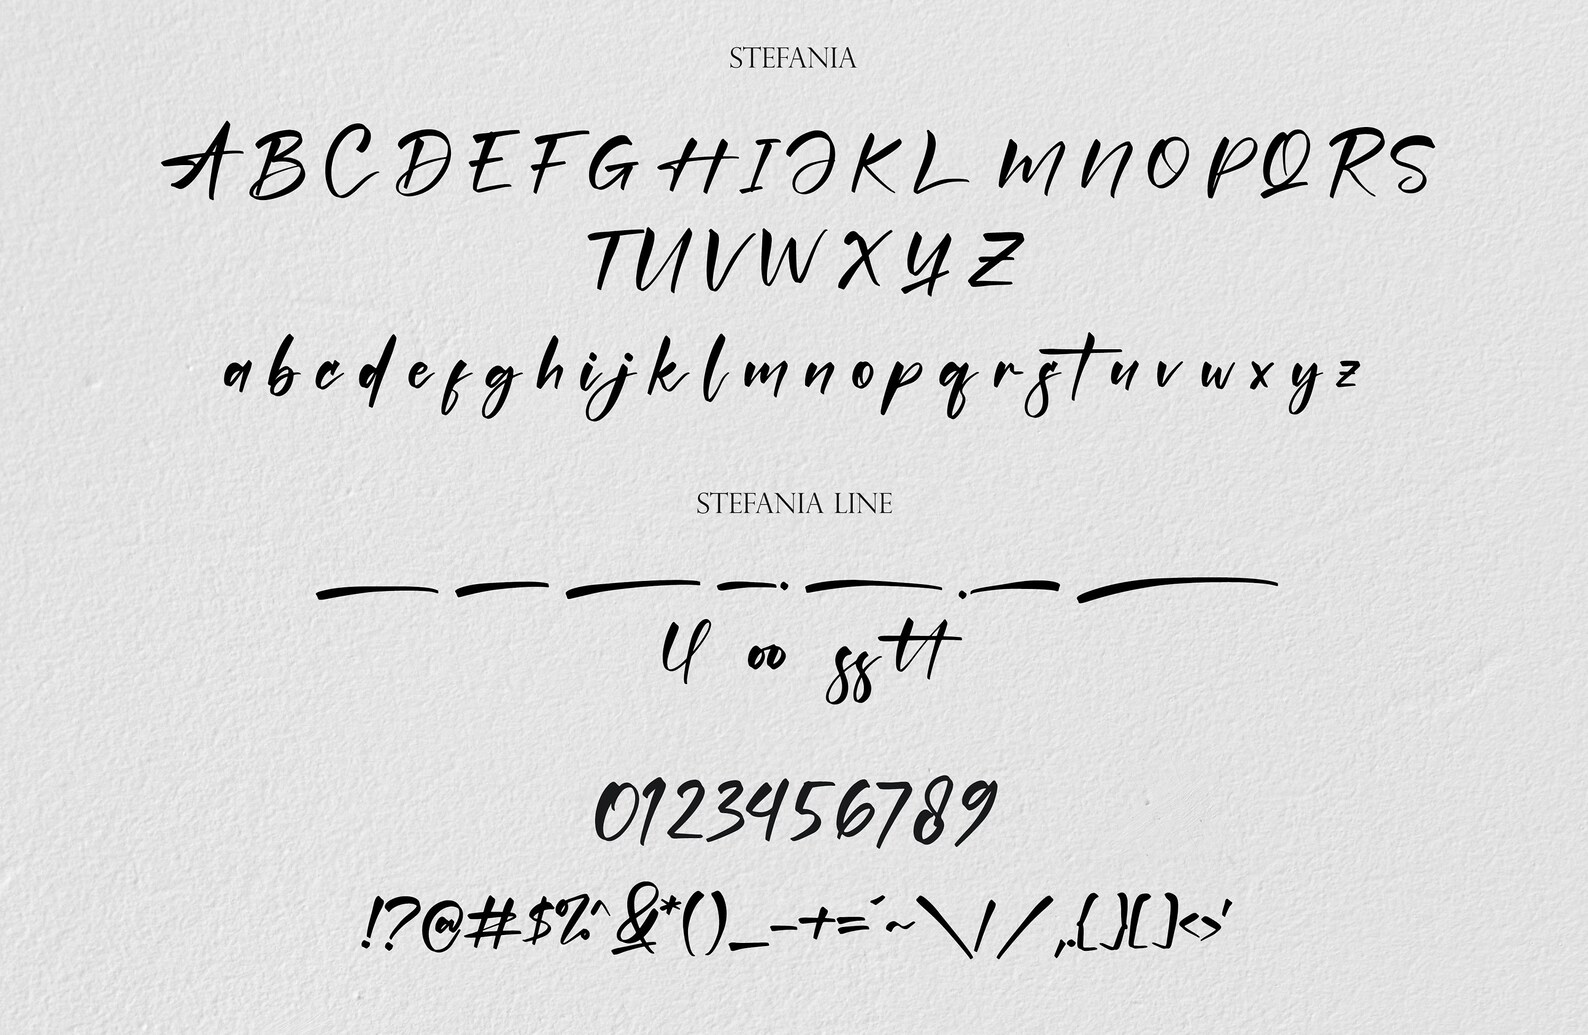 STEFANIA
A B C D E F G H I J K L M N O P Q R S
T U V W X Y Z
a b c d e f g h i j k l m n o p q r s t u v w x y z
STEFANIA LINE
ll oo ss tt
0123456789
!?@#$%^&*()_-+=´~\|/,.{}[]<>'